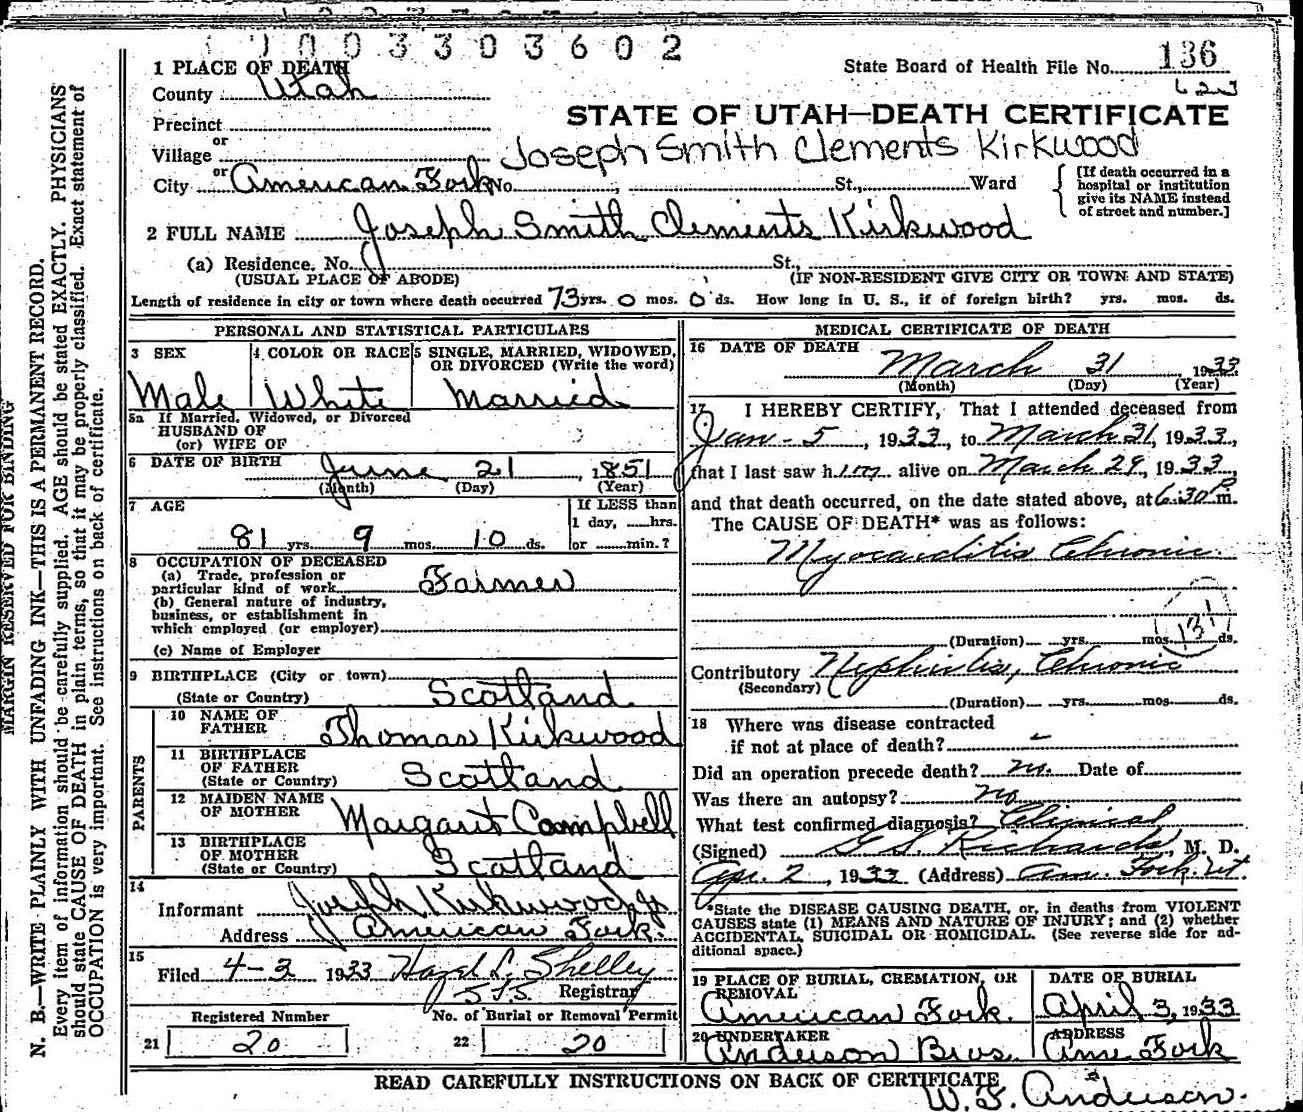 1003303602
1 PLACE OF DEATH
State Board of Health File No. 136
County Utah
623
STATE OF UTAH—DEATH CERTIFICATE
Precinct
or
Village
Joseph Smith Clements Kirkwood
or
City American Fork No. , St., Ward
[If death occurred in a
hospital or institution
give its NAME instead
of street and number.]
2 FULL NAME Joseph Smith Clements Kirkwood
(a) Residence. No. St.,
(USUAL PLACE OF ABODE) (IF NON-RESIDENT GIVE CITY OR TOWN AND STATE)
Length of residence in city or town where death occurred 73 yrs. 0 mos. 0 ds. How long in U. S., if of foreign birth? yrs. mos. ds.
PERSONAL AND STATISTICAL PARTICULARS
3 SEX
Male
4 COLOR OR RACE
White
5 SINGLE, MARRIED, WIDOWED,
OR DIVORCED (Write the word)
Married
5a If Married, Widowed, or Divorced
HUSBAND OF
(or) WIFE OF
6 DATE OF BIRTH June 21 1851
(Month) (Day) (Year)
7 AGE
81 yrs. 9 mos. 10 ds.
If LESS than
1 day, hrs.
or min.?
8 OCCUPATION OF DECEASED
(a) Trade, profession or
particular kind of work Farmer
(b) General nature of industry,
business, or establishment in
which employed (or employer)
(c) Name of Employer
9 BIRTHPLACE (City or town)
(State or Country) Scotland
PARENTS
10 NAME OF
FATHER Thomas Kirkwood
11 BIRTHPLACE
OF FATHER
(State or Country) Scotland
12 MAIDEN NAME
OF MOTHER Margaret Campbell
13 BIRTHPLACE
OF MOTHER
(State or Country) Scotland
14
Informant Joseph Kirkwood Jr
Address American Fork.
15
Filed 4-3 1933 Hazel L. Shelley
Registrar
Registered Number
21 20
No. of Burial or Removal Permit
22 20
MEDICAL CERTIFICATE OF DEATH
16 DATE OF DEATH
March 31 1933
(Month) (Day) (Year)
17 I HEREBY CERTIFY, That I attended deceased from
Jan - 5, 1933, to March 31, 1933,
that I last saw him alive on March 29, 1933,
and that death occurred, on the date stated above, at 6:30 P m.
The CAUSE OF DEATH* was as follows:
Myocarditis Chronic.
131
(Duration) yrs. mos. ds.
Contributory Nephritis, Chronic
(Secondary)
(Duration) yrs. mos. ds.
18 Where was disease contracted
if not at place of death? -
Did an operation precede death? no. Date of
Was there an autopsy? no
What test confirmed diagnosis? Clinical
(Signed) G S. Richards, M. D.
Apr. 2, 1933 (Address) Am. Fork. Ut.
*State the DISEASE CAUSING DEATH, or, in deaths from VIOLENT
CAUSES state (1) MEANS AND NATURE OF INJURY; and (2) whether
ACCIDENTAL, SUICIDAL OR HOMICIDAL. (See reverse side for ad-
ditional space.)
19 PLACE OF BURIAL, CREMATION, OR
REMOVAL
American Fork.
DATE OF BURIAL
April 3, 1933
20 UNDERTAKER
Anderson Bros.
ADDRESS
Ame Fork
READ CAREFULLY INSTRUCTIONS ON BACK OF CERTIFICATE
W. F. Anderson.
MARGIN RESERVED FOR BINDING
N. B.—WRITE PLAINLY WITH UNFADING INK—THIS IS A PERMANENT RECORD.
Every item of information should be carefully supplied. AGE should be stated EXACTLY. PHYSICIANS
should state CAUSE OF DEATH in plain terms, so that it may be properly classified. Exact statement of
OCCUPATION is very important. See instructions on back of certificate.